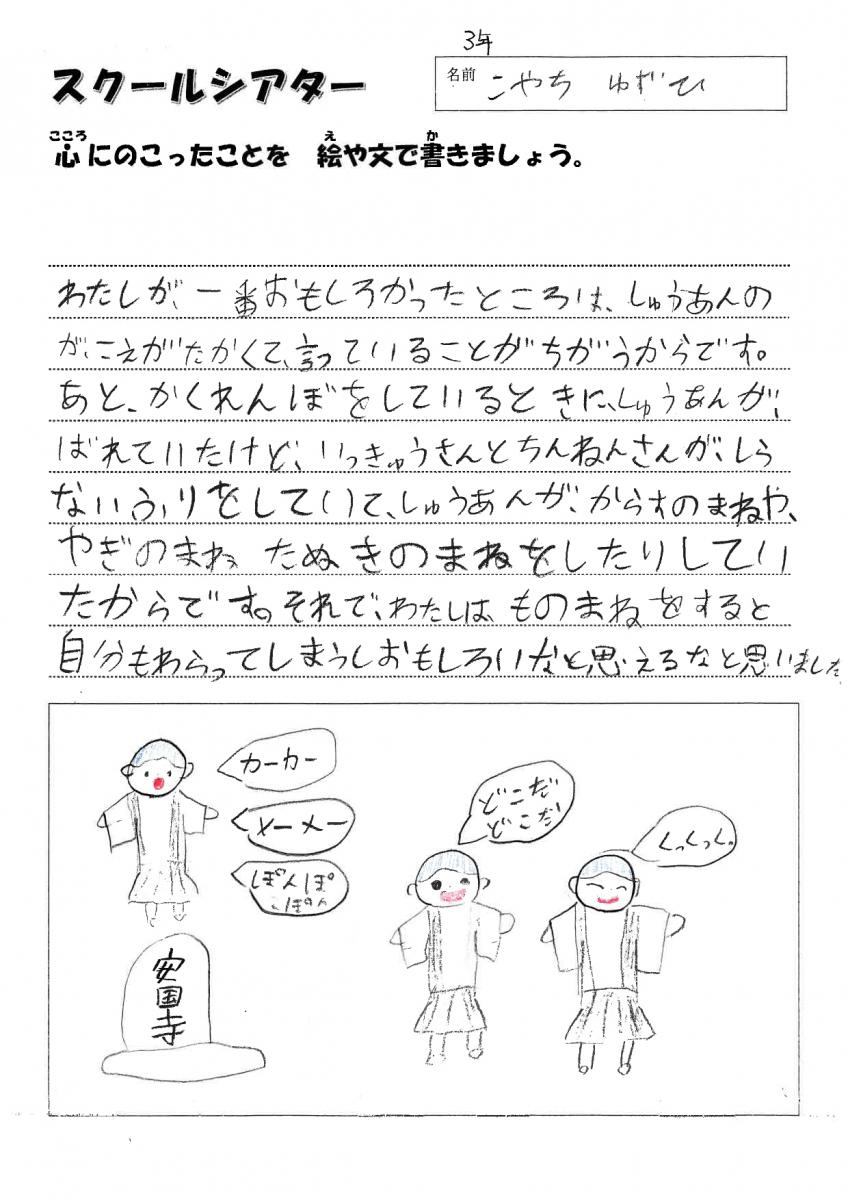 3年
スクールシアター
名前
こやち ゆずひ
こころ え か
心にのこったことを 絵や文で書きましょう。
わたしが、一番おもしろかったところは、しゅうあんの
が、こえがたかくて、言っていることがちがうからです。
あと、かくれんぼをしているときに、しゅうあんが、
ばれていたけど、いっきゅうさんとちんねんさんが、しら
ないふりをしていて、しゅうあんが、からすのまねや、
やぎのまね たぬきのまねをしたりしてい
たからです。それで、わたしは、ものまねをすると
自分もわらってしまうしおもしろいなと思えるなと思いました
カーカー
メーメー
ぽんぽ
こぽん
どこだ
どこだ
くっくっく。
安国寺